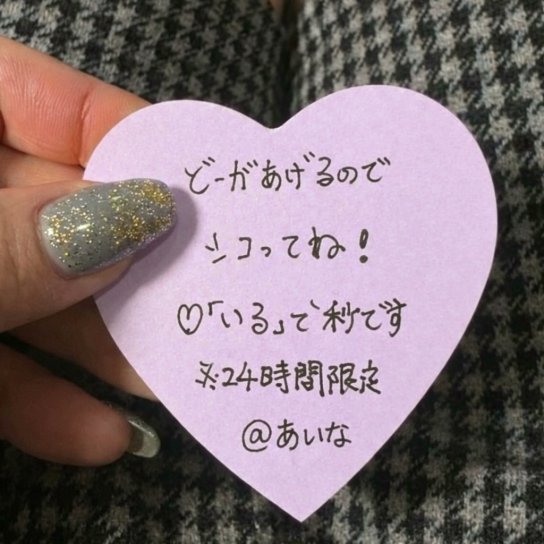 どーがあげるので
シコってね!
♡「いる」で秒です
※24時間限定
@あいな